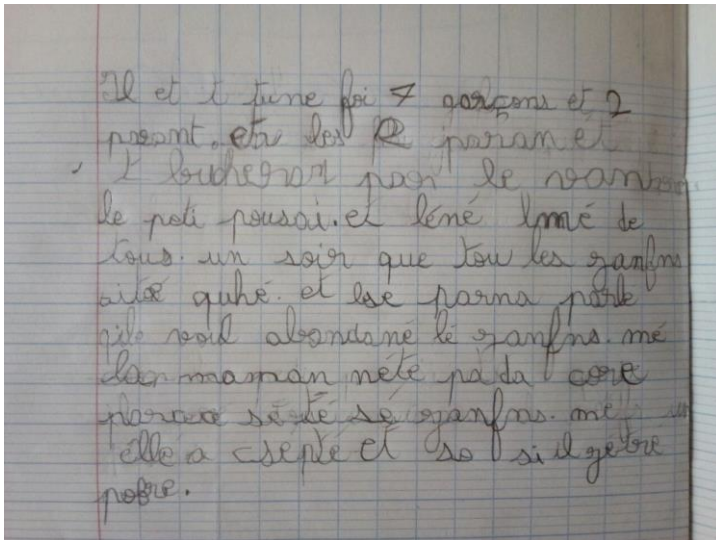 Il et t tune foi 7 garçons et 2
parant. et les 2 paran et
t bucheron par le
le peti pousai. et léné lmé de
tous. un soir que tou les zanfns
aité quhé. et lse parna parle
qils voul abandané lé zanfns. mé
la maman neté pa da core
parace sété sé zanfns. me
elle a csepté et so si il getré
pobre.